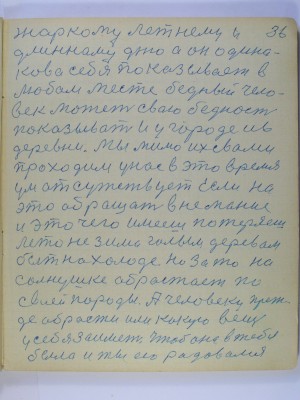 жаркому летнему и 36
длинному дню а он одина-
кова себя показывает в
любом месте бедный чело-
век может сваю бедност
показыват и у городе и в
деревни. Мы мимо их свами
проходим у нас в это время
ум отсужствует Если на
это обращат внемание
и это чего имееш потеряеш
лето не зима голвым деревам
быт на холоде. Но зато на
солнушке обрастает по
своей породы. А человеку преж-
де обрасти или какую вещ
у себя заимет чтоб она в тебя
была и ты ею радовался